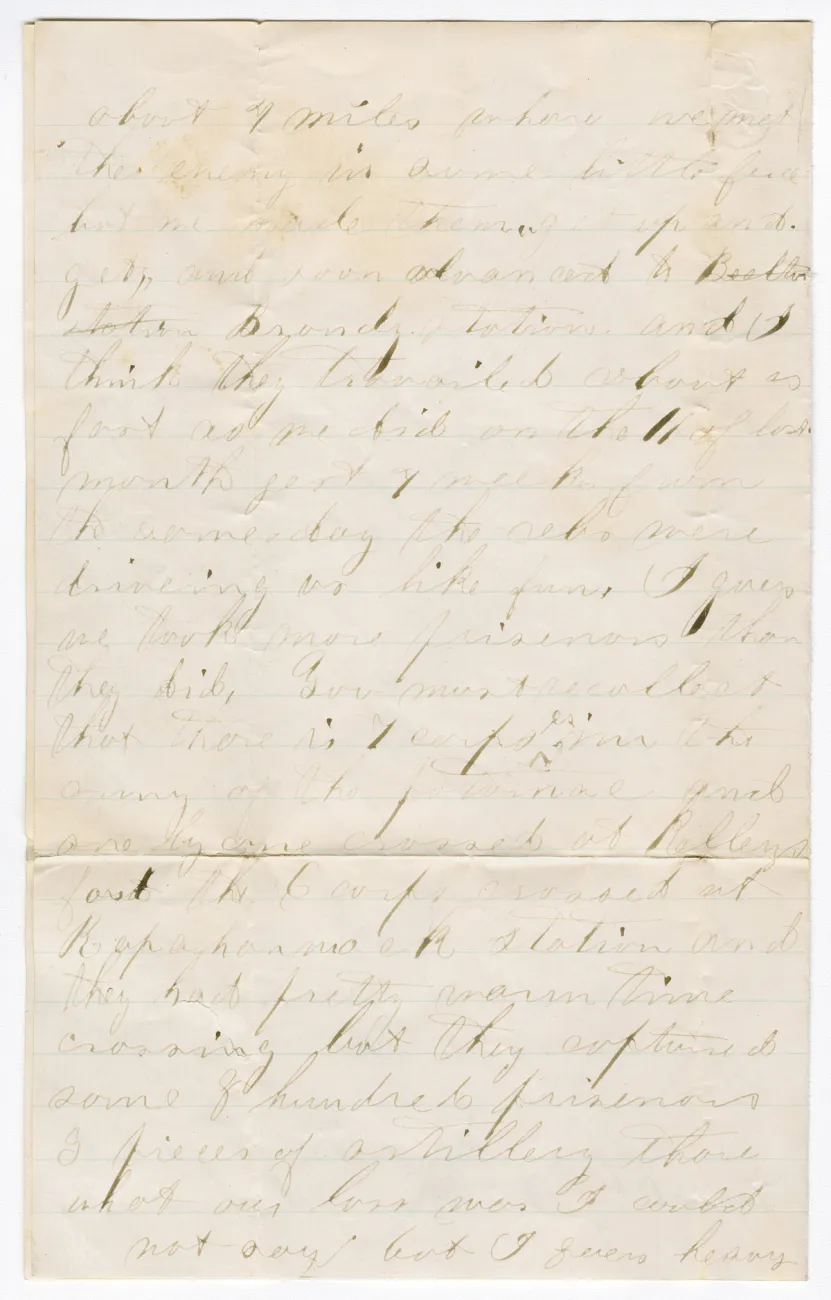 about 4 miles where we met
the enemy in some little force
but we made them "get up and
get," and soon advanced to Bealton
station Brandy station. and I
think they travailed about as
fast as we did on the 11 of last
month gest 4 weeks from
the same day the rebs were
driveing us like fun, I guess
we took more prisenors than
they did, You must recollect
that there is 7 corpses in the
army of the potomac and
one by one crossed at Kelleys
ford the 6 corps crossed at
Rapaphannock station and
they had pretty warm time
crossing but they captured
some 8 hundred prisenors
3 pieces of artillery there
what our loss was I could
not say but I guess heavy